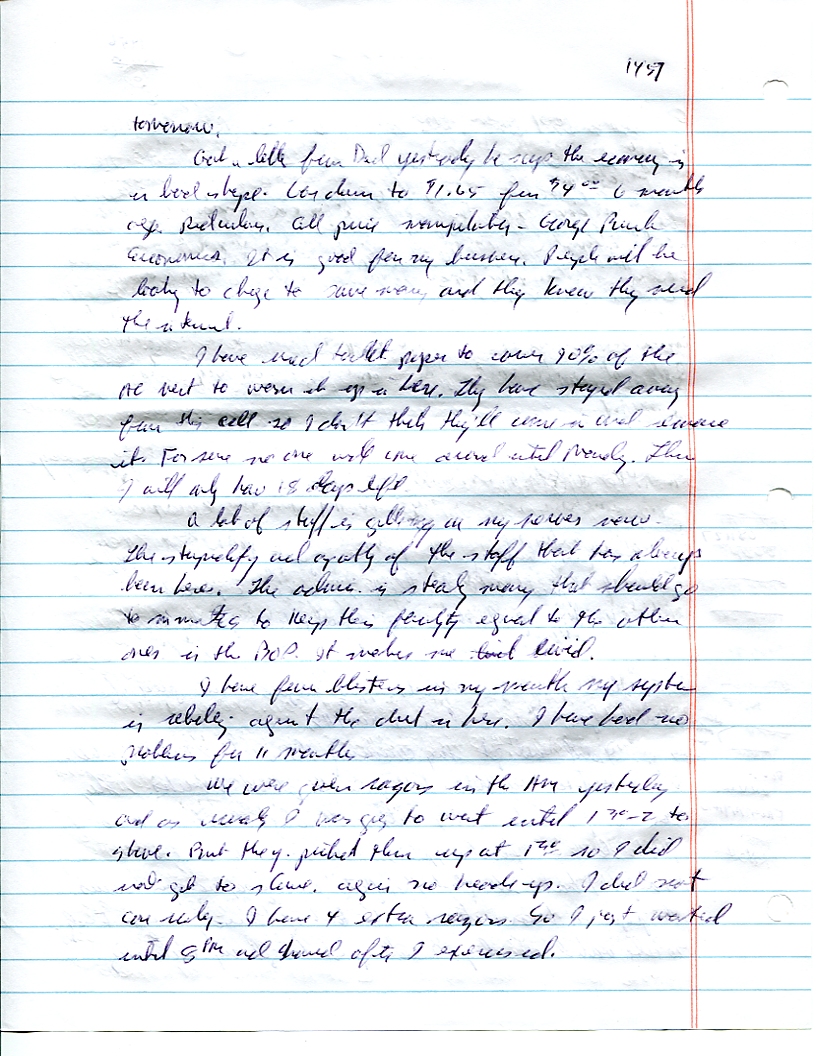 1457
tomorrow.
Got a letter from Dad yesterday he says the economy is
in bad shape. Gas down to $1.65 from $4.00 6 months
ago. Ridiculous. All pure manipulation - George Bush
Economics. It is good for my business. People will be
looking to change to save money and they know they need
the internet.
I have used toilet paper to cover 90% of the
AC vent to warm it up in here. They have stayed away
from this cell so I don't think they'll come in and remove
it. For sure no one will come around until Monday. Then
I will only have 18 days left.
A lot of stuff is getting on my nerves now.
The stupidity and apathy of the staff that has always
been here. The admin. is stealing money that should go
to inmates to keep this facility equal to the other
ones in the BoP. It makes me livid.
I have four blisters in my mouth my system
is rebeling against the diet in here. I have had no
problems for 11 months
We were given razors in the AM yesterday
and as usual I was going to wait until 1:30-2 to
shave. But they picked them up at 1:30 so I did
not get to shave. again no heads up. I did not
care really. I have 4 extra razors so I just waited
until 5PM and shaved after I exercised.